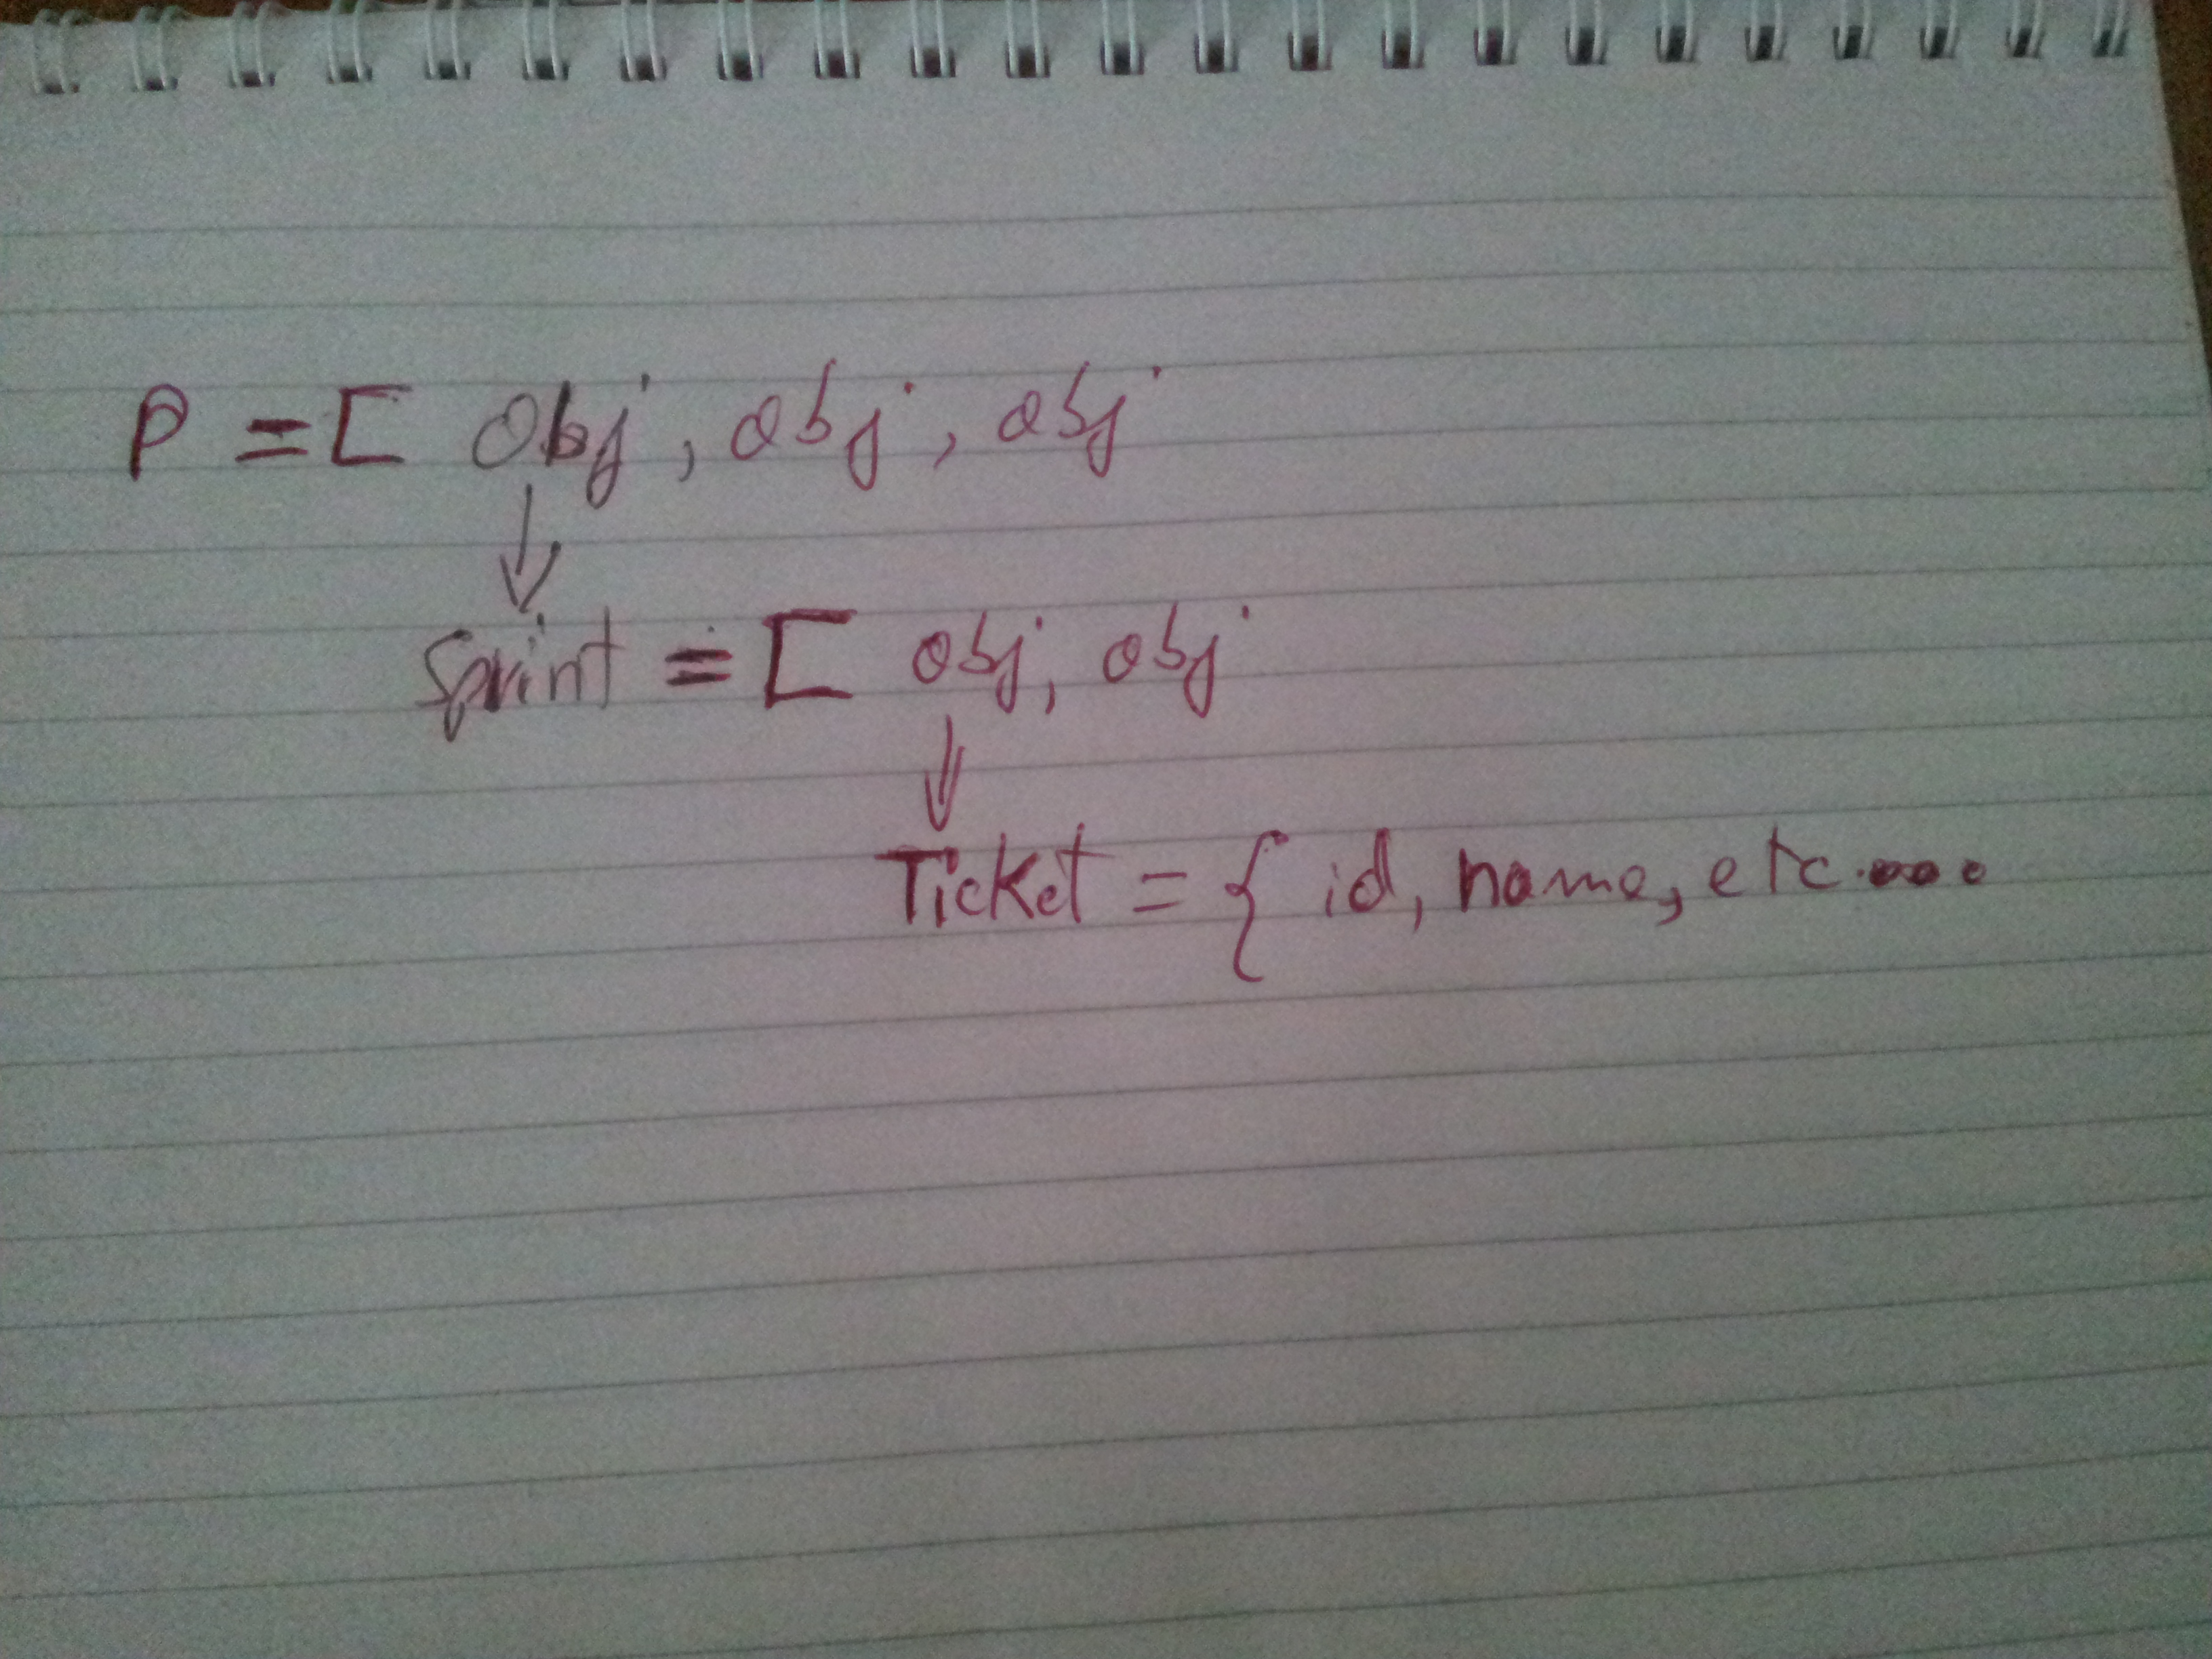 P = [ Obj, obj, obj
Sprint = [ obj, obj
Ticket = { id, name, etc....